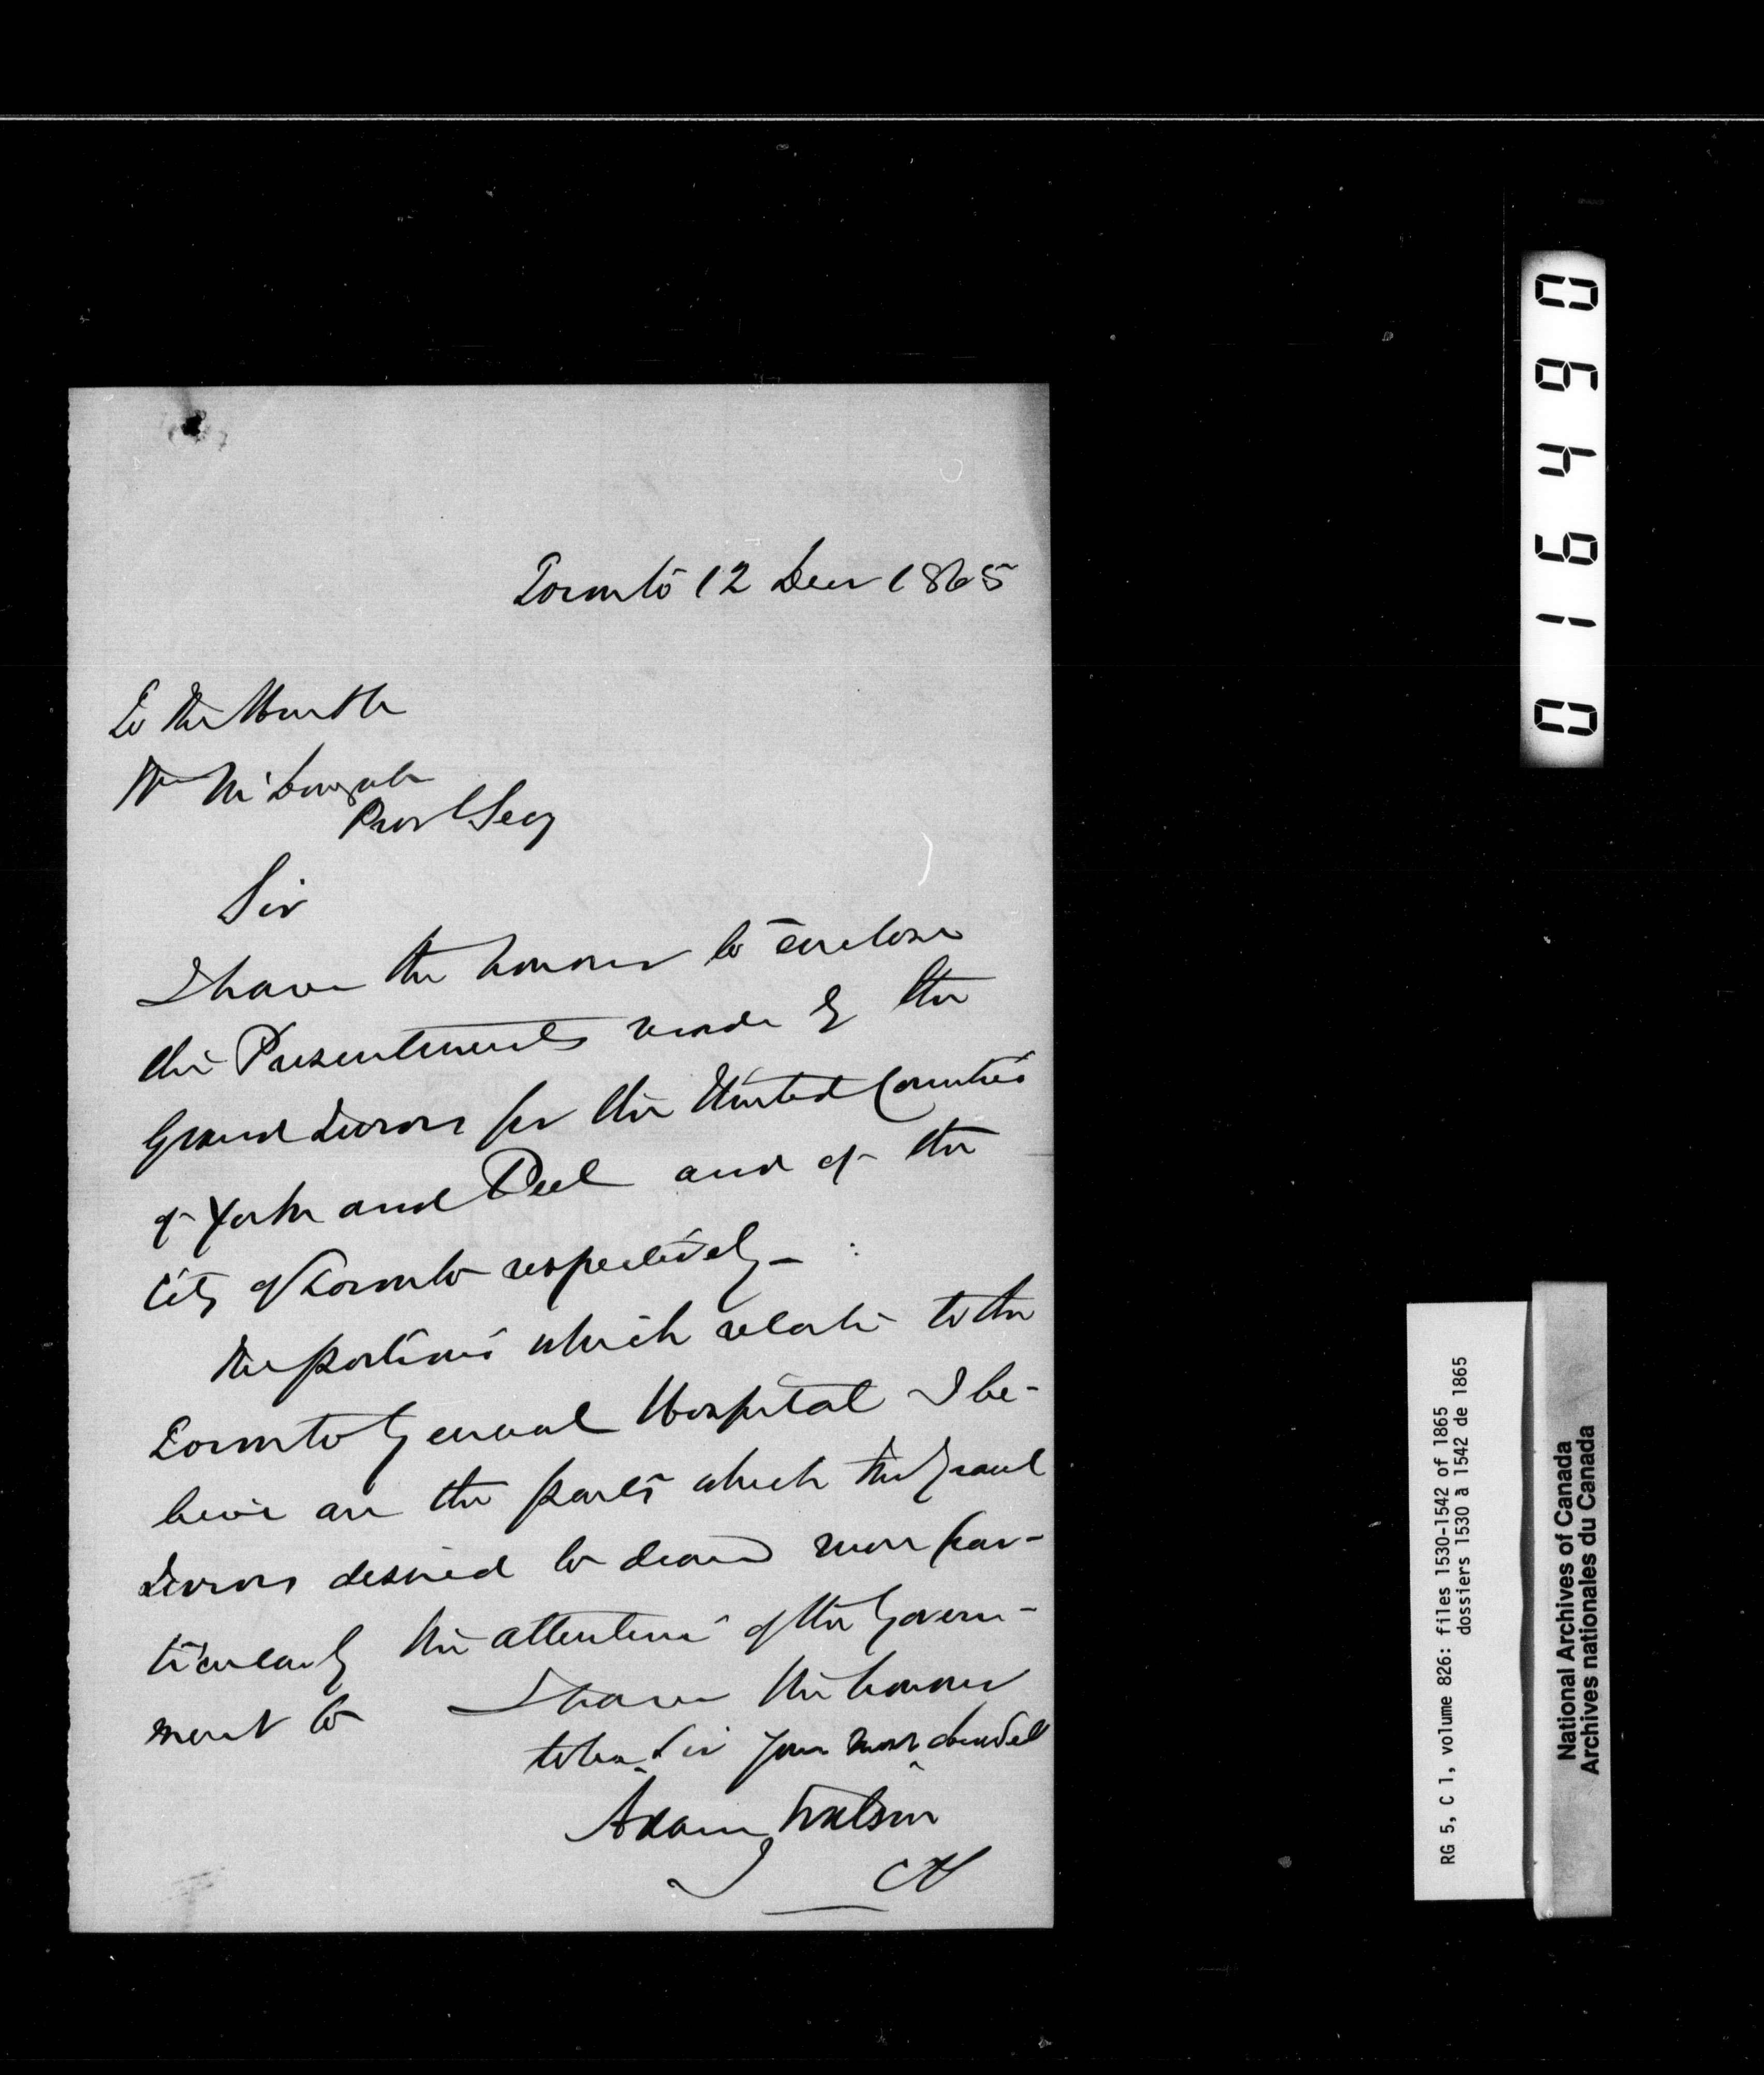 Toronto 12 Decr 1865
To the Honble
Wm McDougall
Provl Secy
Sir
I have the honour to enclose
the Presentments made by the
Grand Jurors for the United Counties
of York and Peel and of the
City of Toronto respectively —
The portions which relate to the
Toronto General Hospital I be-
lieve are the parts which the Grand
Jurors desired to draw more par-
ticularly the attention of the Govern-
ment to I have the honour
to be Sir your most obedt
Adam Wilson
J
016490
RG 5, C 1, volume 826: files 1530-1542 of 1865
dossiers 1530 à 1542 de 1865
National Archives of Canada
Archives nationales du Canada